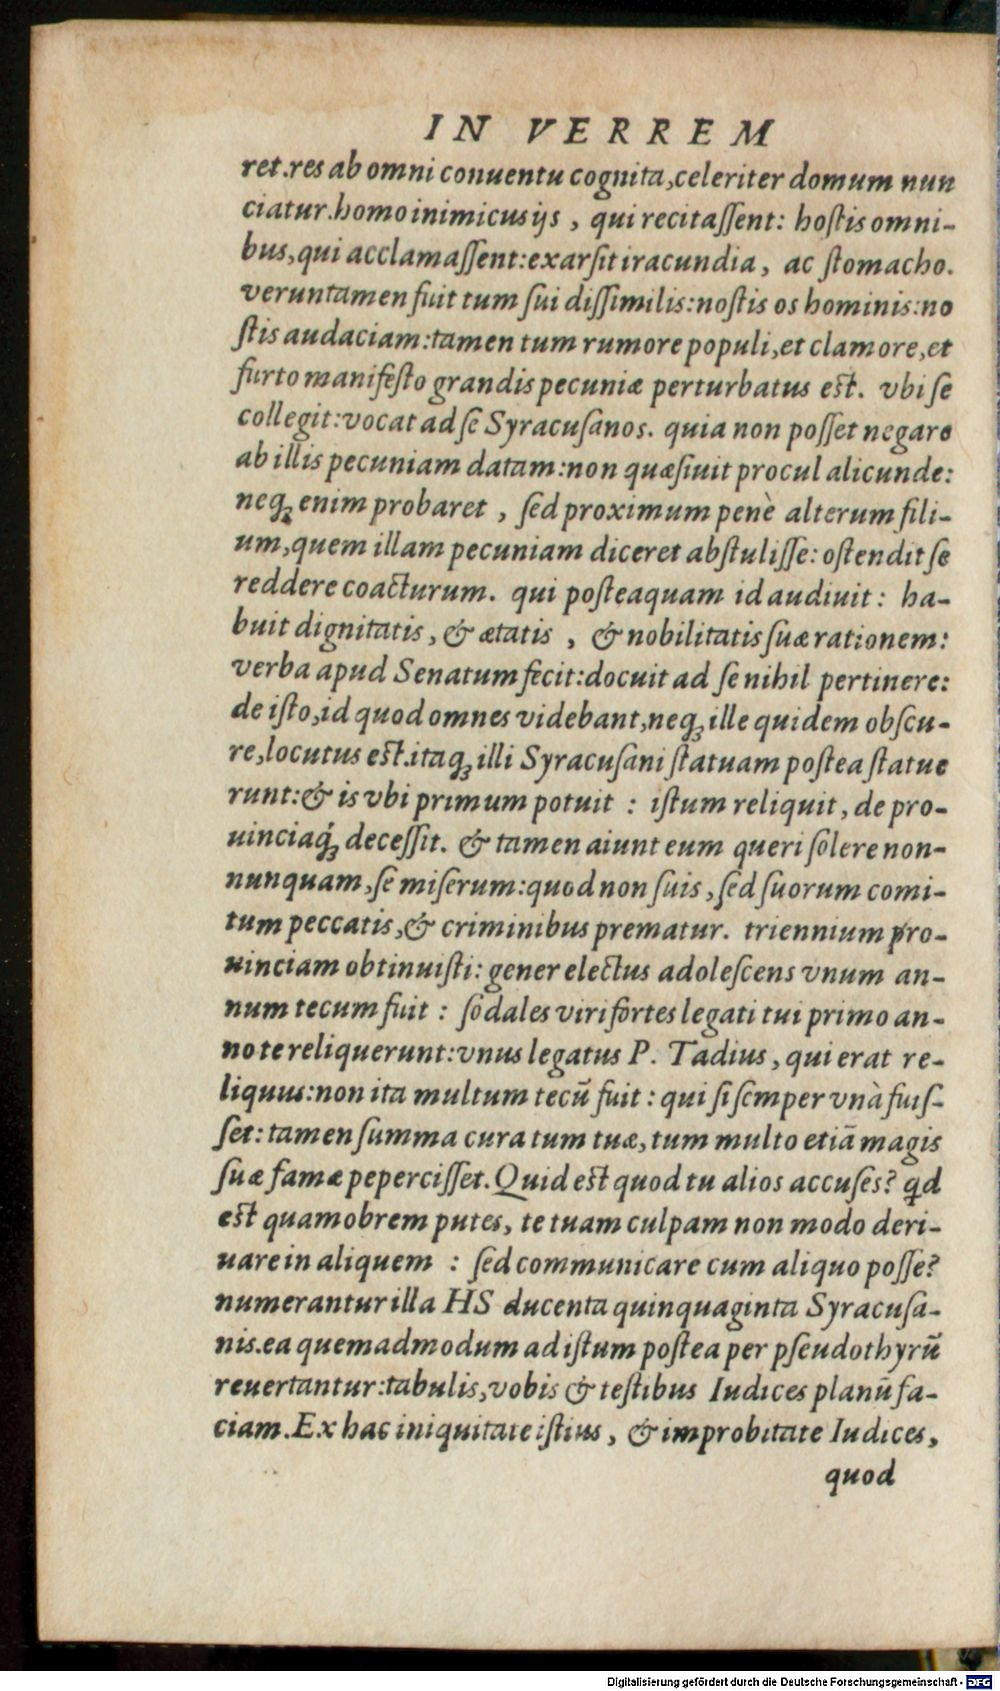 IN VERREM
ret.res ab omni conuentu cognita,celeriter domum nun
ciatur.homo inimicus ijs , qui recitaſſent: hoſtis omni-
bus,qui acclamaſſent:exarſit iracundia, ac ſtomacho.
veruntamen fuit tum ſui diſſimilis:noſtis os hominis:no
ſtis audaciam:tamen tum rumore populi,et clamore,et
furto manifeſto grandis pecuniæ perturbatus eſt. vbi ſe
collegit:vocat ad ſe Syracuſanos. quia non poſſet negare
ab illis pecuniam datam:non quæſiuit procul alicunde:
neqꝫ enim probaret , ſed proximum penè alterum fili-
um,quem illam pecuniam diceret abſtuliſſe: oſtendit ſe
reddere coacturum. qui poſteaquam id audiuit: ha-
buit dignitatis, & ætatis , & nobilitatis ſuæ rationem:
verba apud Senatum fecit:docuit ad ſe nihil pertinere:
de iſto,id quod omnes videbant,neqꝫ ille quidem obſcu-
re,locutus eſt.itaqꝫ illi Syracuſani ſtatuam poſtea ſtatue
runt:& is vbi primum potuit : iſtum reliquit, de pro-
uinciaq́ꝫ deceſſit. & tamen aiunt eum queri ſolere non-
nunquam,ſe miſerum:quod non ſuis,ſed ſuorum comi-
tum peccatis,& criminibus prematur. triennium pro-
uinciam obtinuiſti: gener electus adoleſcens vnum an-
num tecum fuit : ſodales viri fortes legati tui primo an-
no te reliquerunt:vnus legatus P. Tadius, qui erat re-
liquus:non ita multum tecū fuit : qui ſi ſemper vnà fuiſ-
ſet: tamen ſumma cura tum tuæ, tum multo etiā magis
ſuæ famæ peperciſſet. Quid eſt quod tu alios accuſes? qd
eſt quamobrem putes, te tuam culpam non modo deri-
uare in aliquem : ſed communicare cum aliquo poſſe?
numerantur illa HS ducenta quinquaginta Syracuſa-
nis.ea quemadmodum ad iſtum poſtea per pſeudothyrū
reuertantur:tabulis,vobis & teſtibus Iudices planū fa-
ciam.Ex hac iniquitate iſtius, & improbitate Iudices,
quod
Digitalisierung gefördert durch die Deutsche Forschungsgemeinschaft - DFG